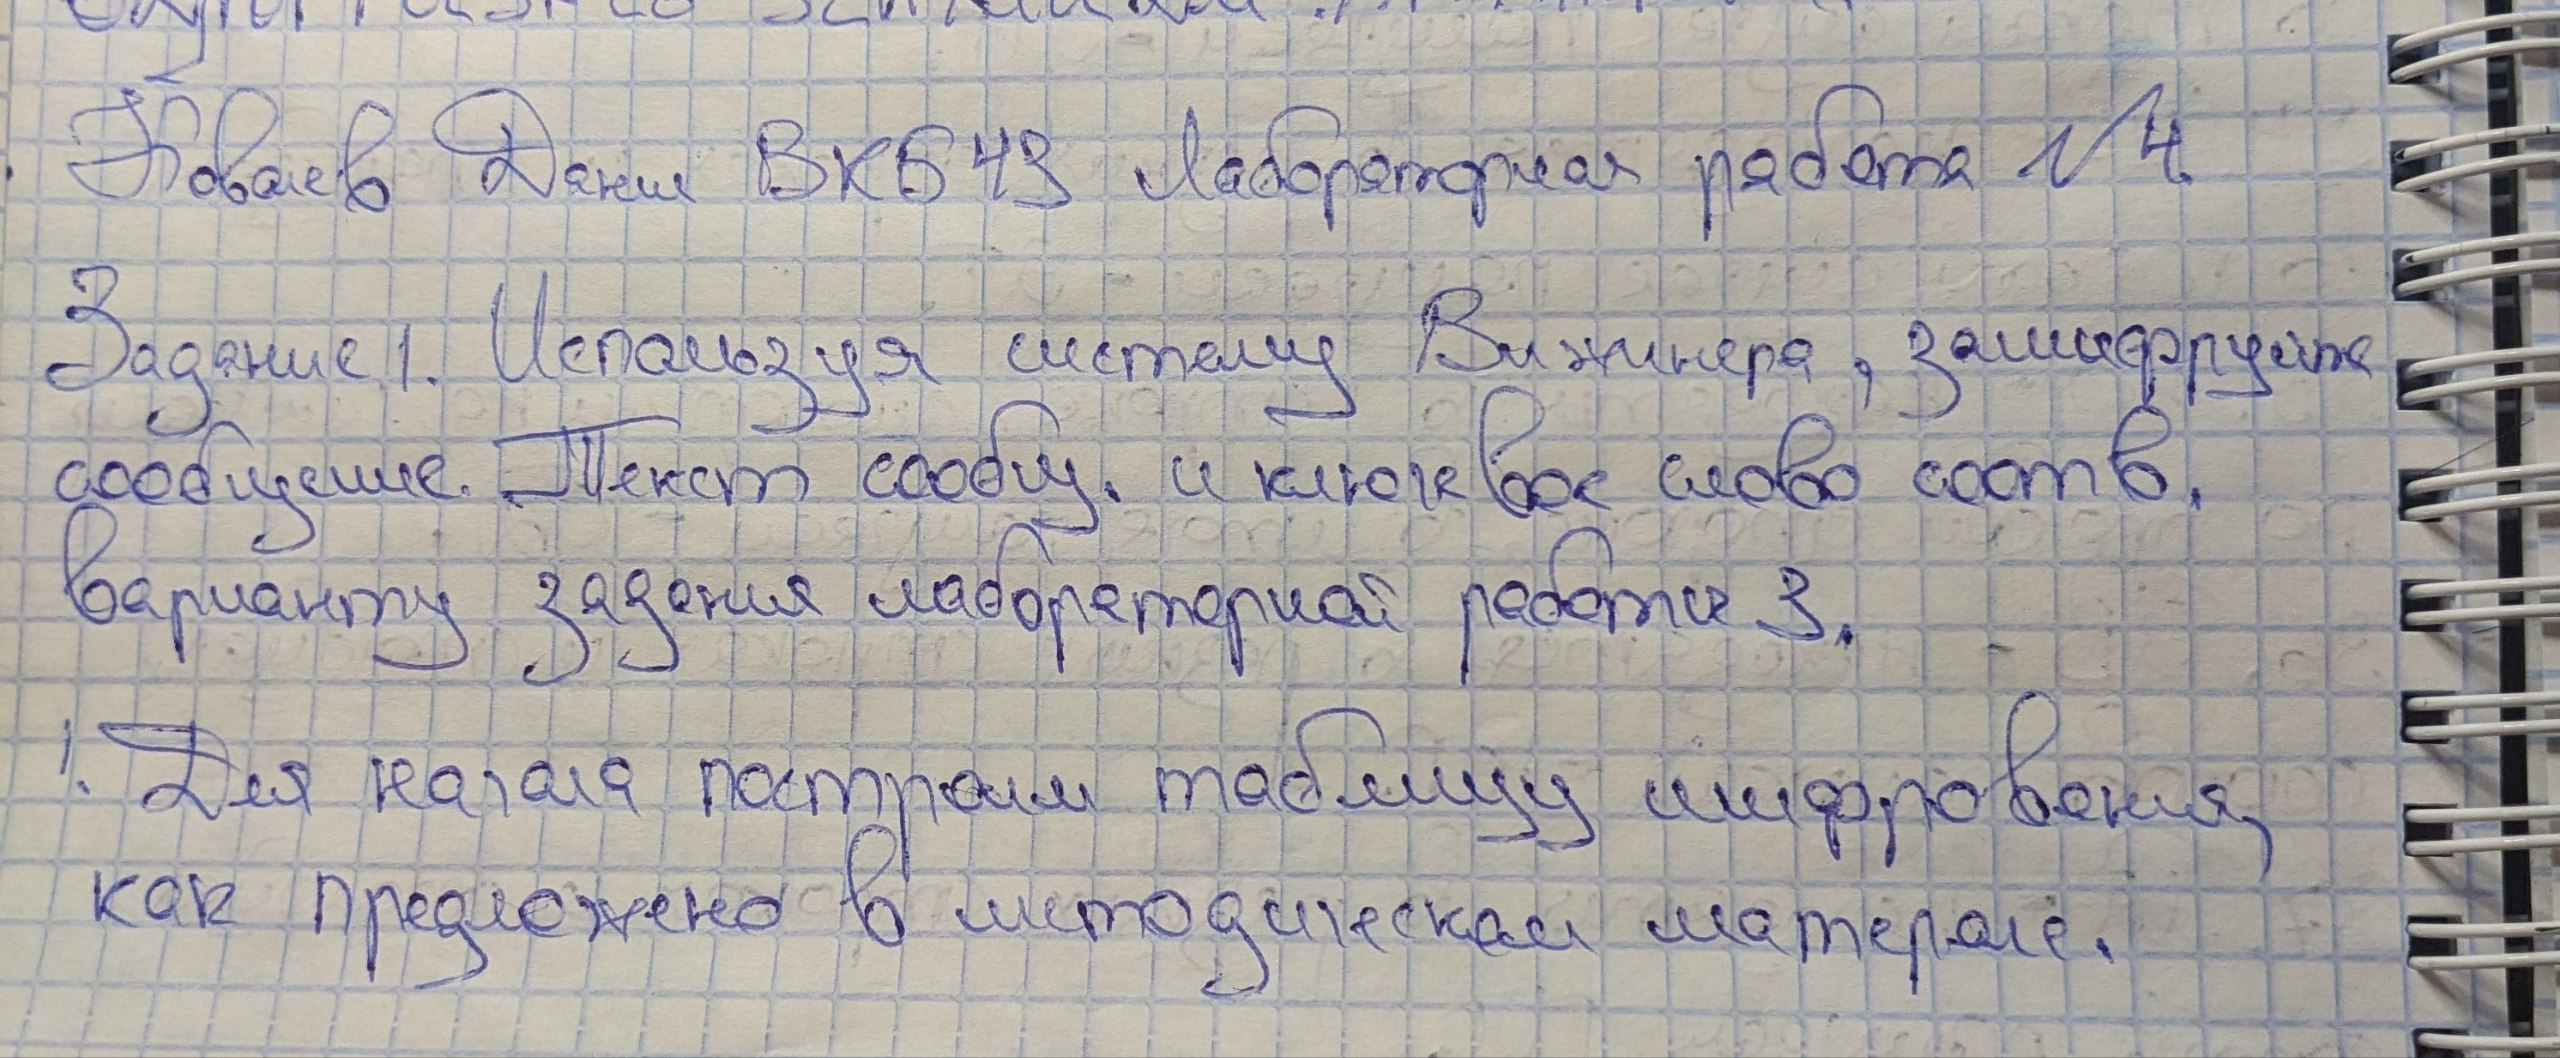 Ковалев Данил ВКБ43 Лабораторная работа №4
Задание 1. Используя систему Вижинера, зашифруйте
сообщение. Текст сообщ. и ключевое слово соотв.
варианту задания лабораторной работы 3.
1. Для начала построим таблицу шифрования,
как предложено в методическом материале.